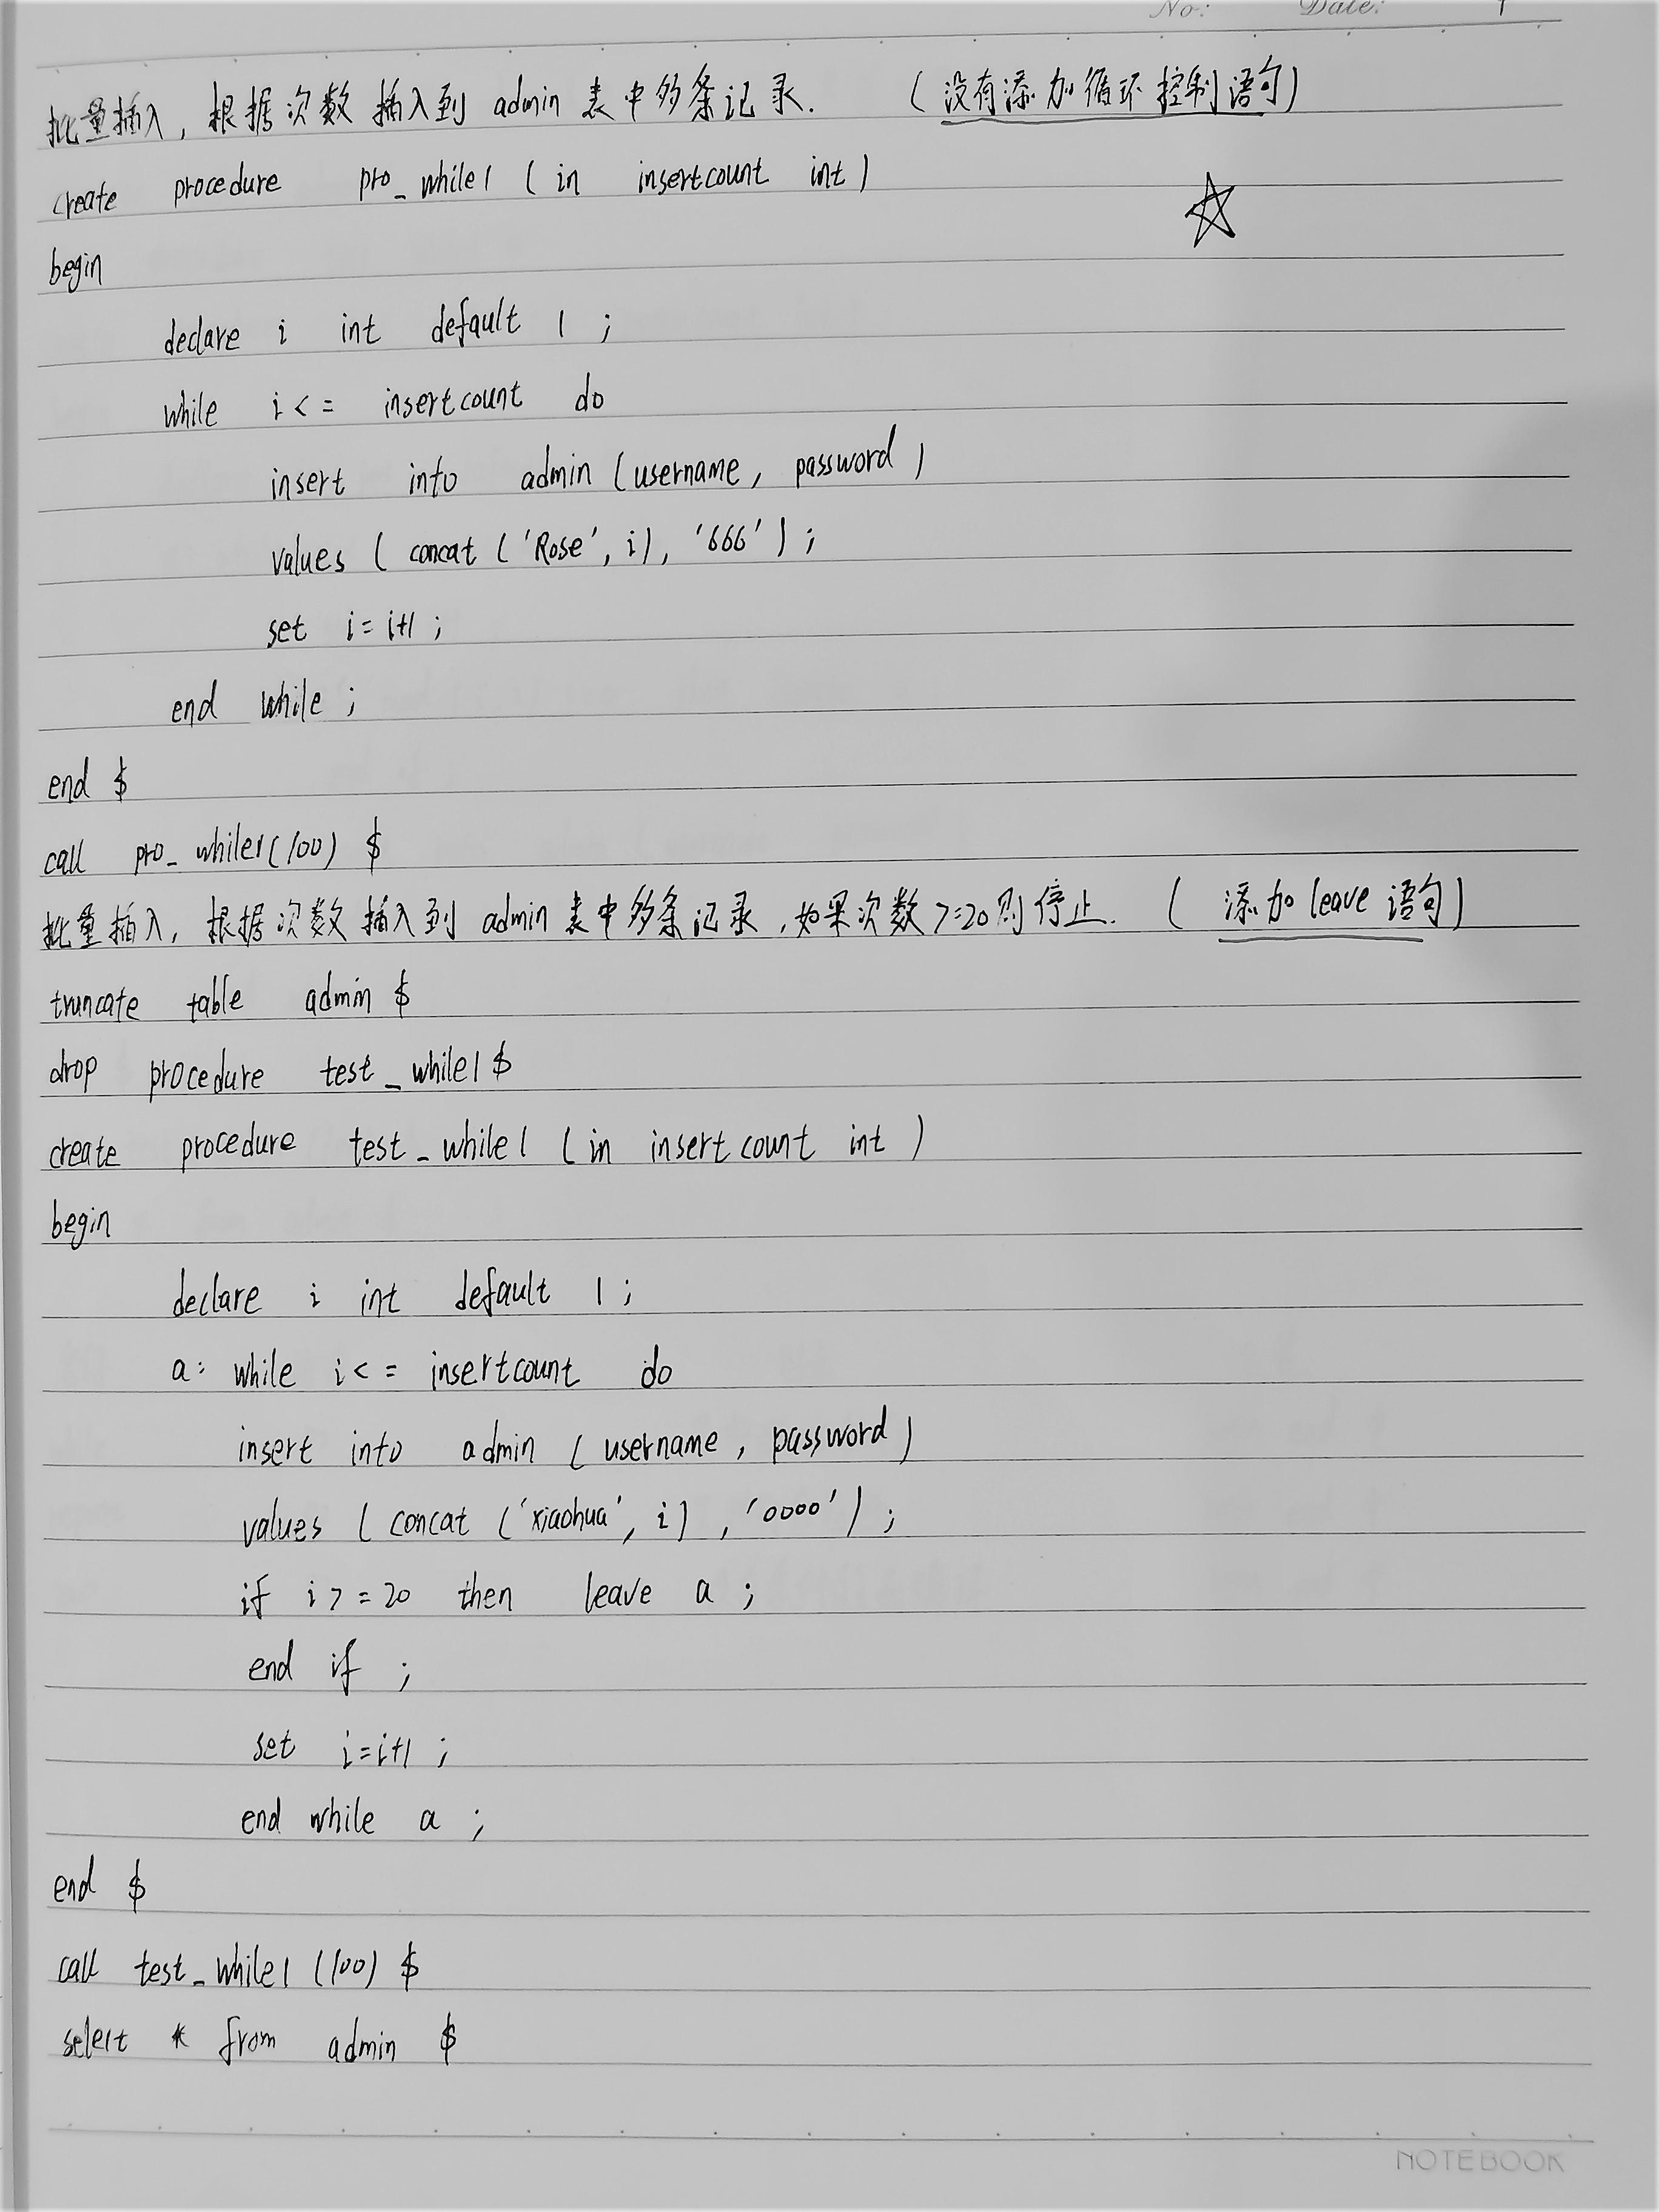 No: Date:
批量插入，根据次数插入到 admin 表中多条记录. （没有添加循环控制语句）
create procedure pro_while1 (in insertcount int)
begin
declare i int default 1 ;
while i<= insertcount do
insert into admin (username, password)
values ( concat ('Rose', i), '666') ;
set i=i+1 ;
end while ;
end $
call pro_while1(100) $
批量插入，根据次数插入到 admin 表中多条记录,如果次数>=20则停止. （添加leave语句）
truncate table admin $
drop procedure test_while1 $
create procedure test_while1 (in insertcount int)
begin
declare i int default 1 ;
a: while i<= insertcount do
insert into admin (username, password)
values (concat ('xiaohua', i) ,'0000') ;
if i>=20 then leave a ;
end if ;
set i=i+1 ;
end while a ;
end $
call test_while1 (100) $
select * from admin $
NOTEBOOK